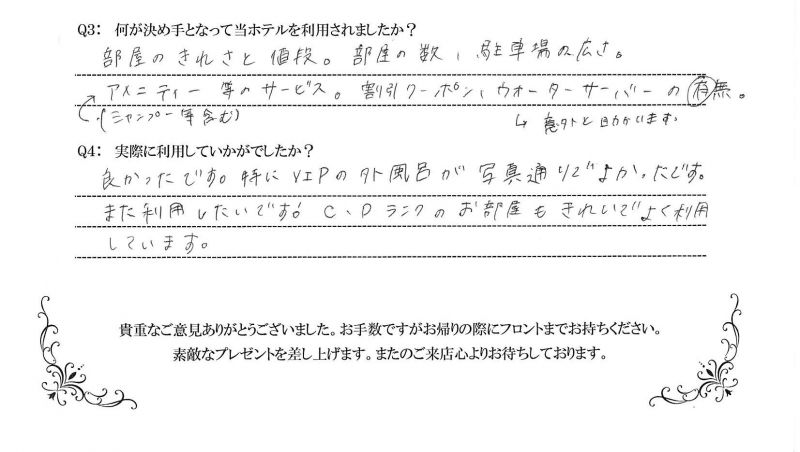 Q3： 何が決め手となって当ホテルを利用されましたか？
部屋のきれさと値段。部屋の数、駐車場の広さ。
アメニティー等のサービス。割引クーポン、ウォーターサーバーの有無。
(シャンプー等含む)
↳ 意外と助かいます。
Q4： 実際に利用していかがでしたか？
良かったです。特にVIPの外風呂が写真通りでよかったです。
また利用したいです。C、Dランクのお部屋もきれいでよく利用
しています。
貴重なご意見ありがとうございました。お手数ですがお帰りの際にフロントまでお持ちください。
素敵なプレゼントを差し上げます。またのご来店心よりお待ちしております。